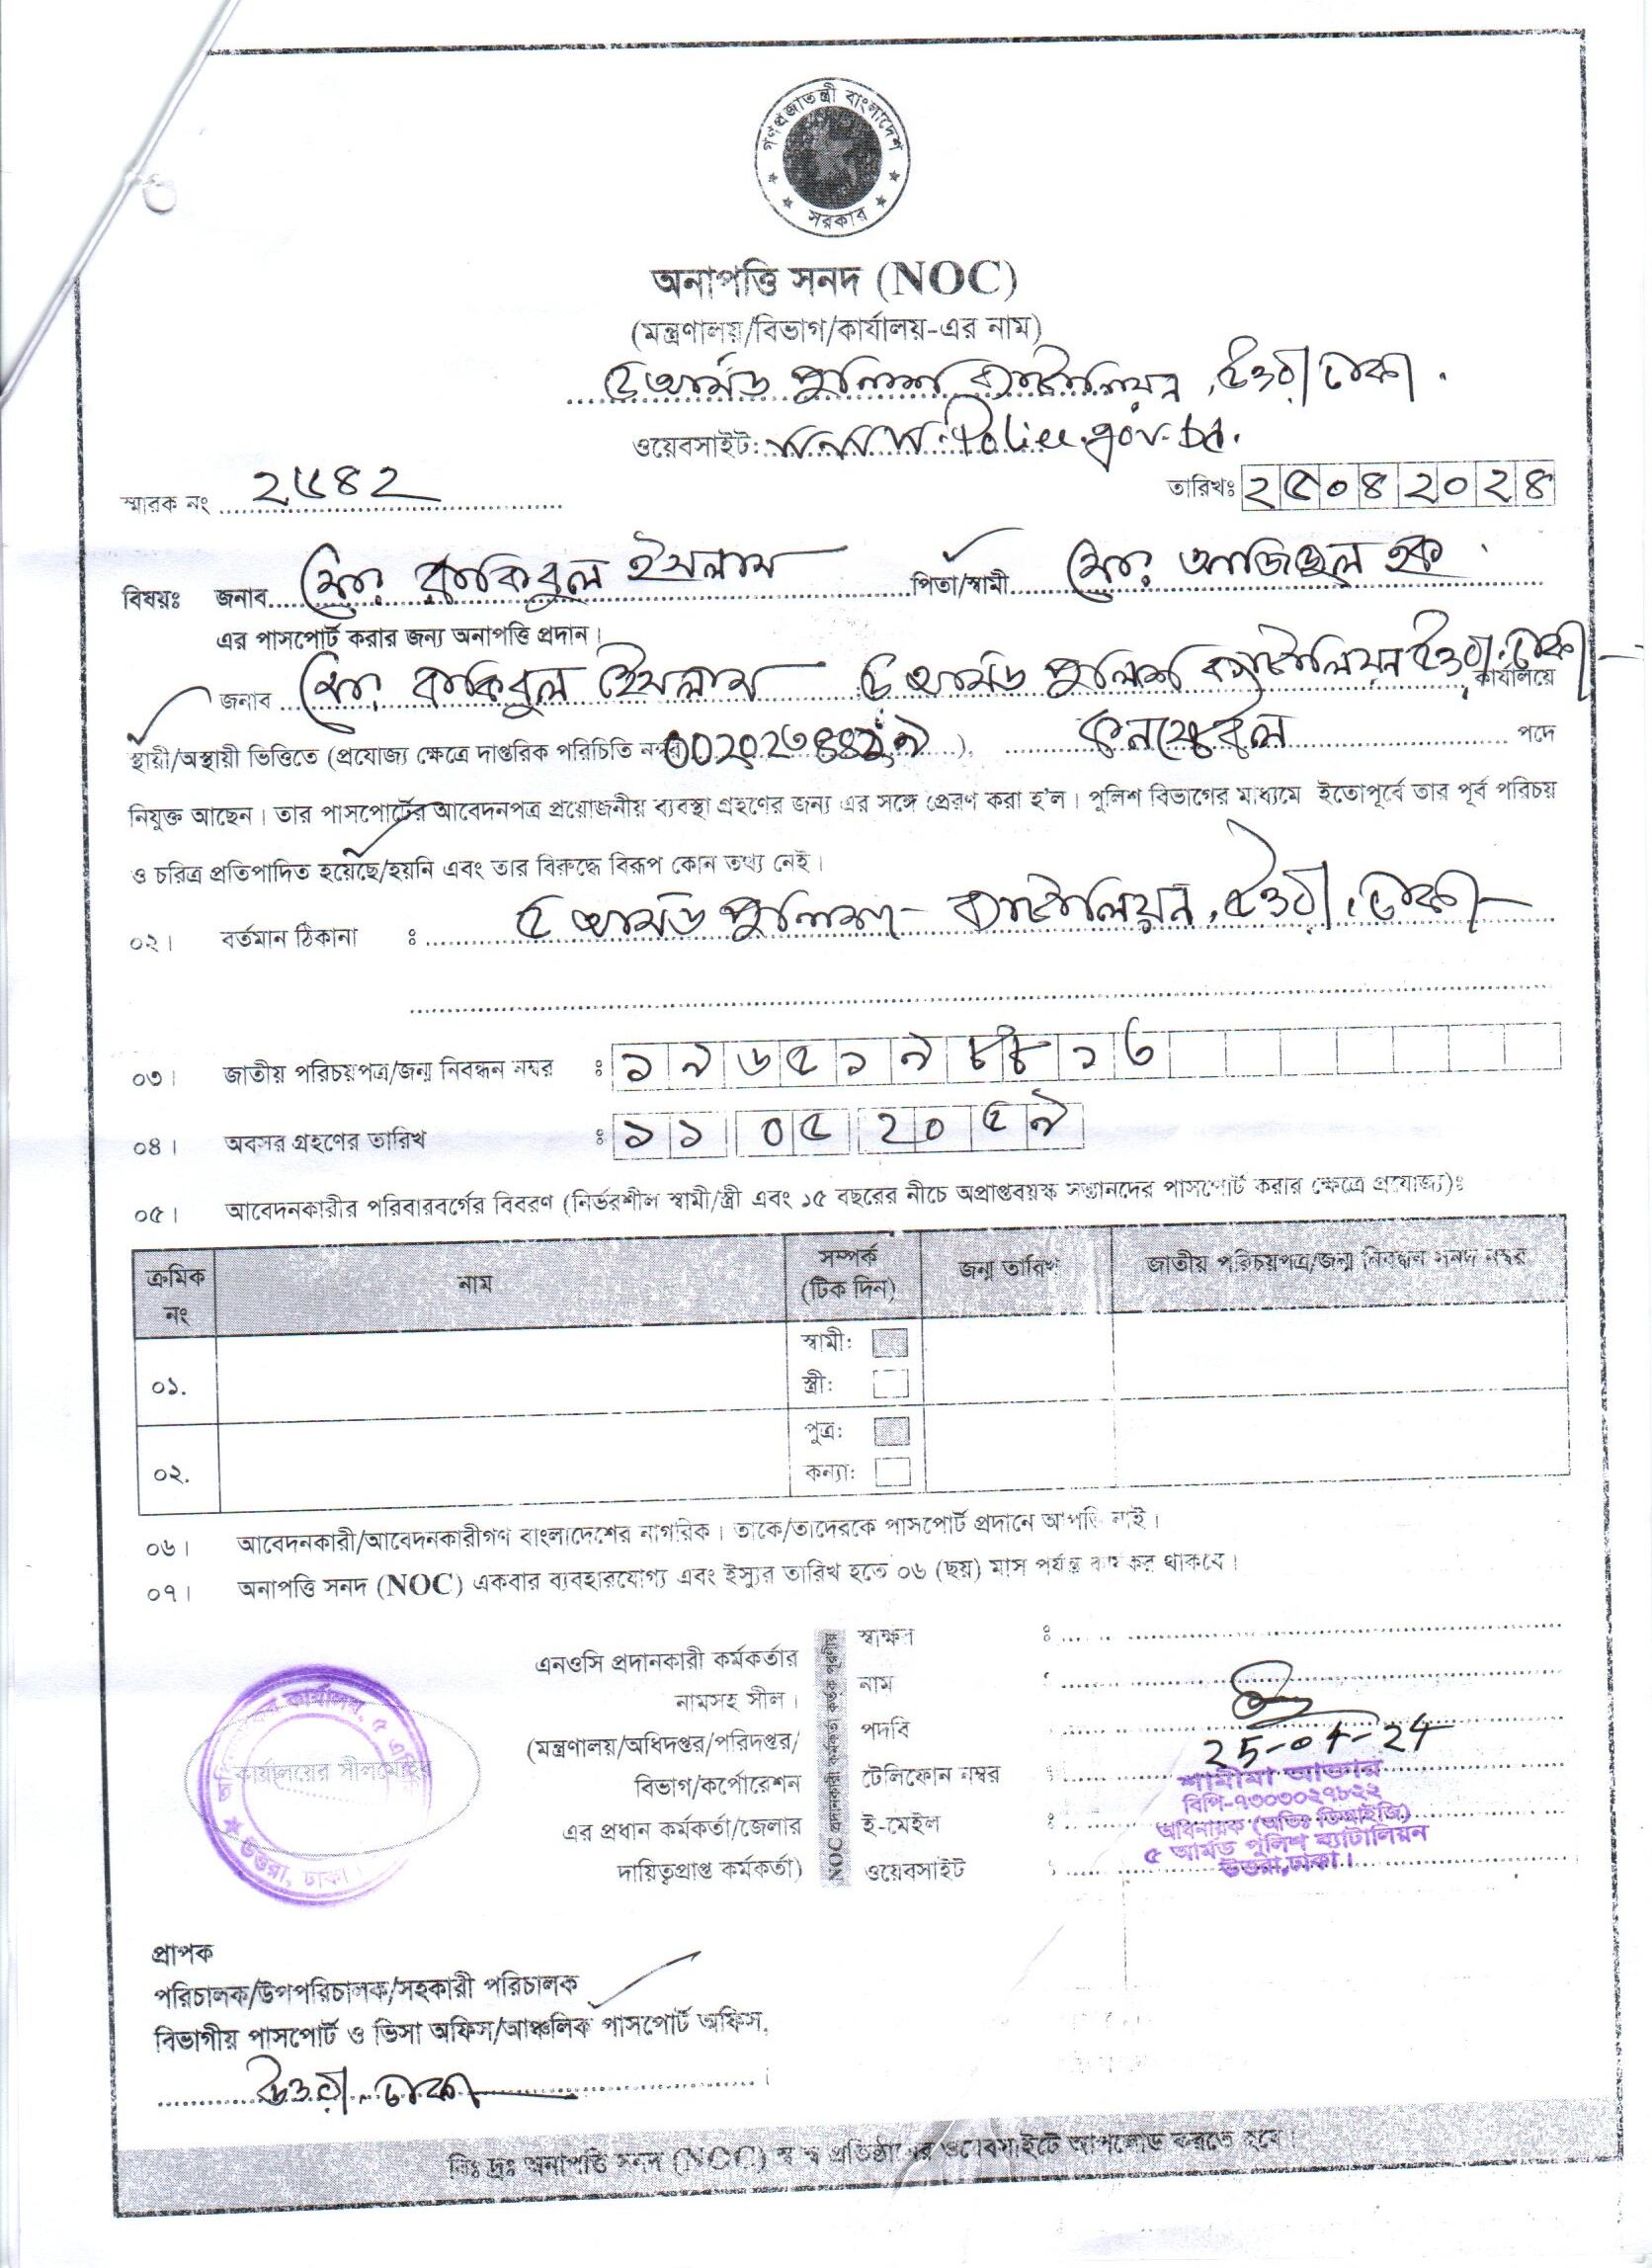 গণপ্রজাতন্ত্রী বাংলাদেশ
সরকার
অনাপত্তি সনদ (NOC)
(মন্ত্রণালয়/বিভাগ/কার্যালয়-এর নাম)
৫ আর্মড পুলিশ ব্যাটালিয়ন, উত্তরা, ঢাকা।
ওয়েবসাইট: www.Police.gov.bd.
স্মারক নং ২৫৪২ তারিখঃ ২৫০৪২০২৪
বিষয়ঃ জনাব মোঃ রাকিবুল ইসলাম পিতা/স্বামী মোঃ আজিজুল হক
এর পাসপোর্ট করার জন্য অনাপত্তি প্রদান।
জনাব মোঃ রাকিবুল ইসলাম ৫ আর্মড পুলিশ ব্যাটালিয়ন উত্তরা, ঢাকা কার্যালয়ে
স্থায়ী/অস্থায়ী ভিত্তিতে (প্রযোজ্য ক্ষেত্রে দাপ্তরিক পরিচিতি নম্বর ), কনস্টেবল পদে
নিযুক্ত আছেন। তার পাসপোর্টের আবেদনপত্র প্রয়োজনীয় ব্যবস্থা গ্রহণের জন্য এর সঙ্গে প্রেরণ করা হ'ল। পুলিশ বিভাগের মাধ্যমে ইতোপূর্বে তার পূর্ব পরিচয়
ও চরিত্র প্রতিপাদিত হয়েছে/হয়নি এবং তার বিরুদ্ধে বিরূপ কোন তথ্য নেই।
০২। বর্তমান ঠিকানা ঃ ৫ আর্মড পুলিশ- ব্যাটালিয়ন, উত্তরা, ঢাকা
০৩। জাতীয় পরিচয়পত্র/জন্ম নিবন্ধন নম্বর ঃ ১৯৬৫১৯৮৮১৩
০৪। অবসর গ্রহণের তারিখ ঃ ১১ ০৫ ২০৫৯
০৫। আবেদনকারীর পরিবারবর্গের বিবরণ (নির্ভরশীল স্বামী/স্ত্রী এবং ১৫ বছরের নীচে অপ্রাপ্তবয়স্ক সন্তানদের পাসপোর্ট করার ক্ষেত্রে প্রযোজ্য)ঃ
ক্রমিক নং নাম সম্পর্ক (টিক দিন) জন্ম তারিখ জাতীয় পরিচয়পত্র/জন্ম নিবন্ধন সনদ নম্বর
স্বামী:
০১.
স্ত্রী:
পুত্র:
০২.
কন্যা:
০৬। আবেদনকারী/আবেদনকারীগণ বাংলাদেশের নাগরিক। তাকে/তাদেরকে পাসপোর্ট প্রদানে আপত্তি নাই।
০৭। অনাপত্তি সনদ (NOC) একবার ব্যবহারযোগ্য এবং ইস্যুর তারিখ হতে ০৬ (ছয়) মাস পর্যন্ত কার্যকর থাকবে।
স্বাক্ষর ঃ
এনওসি প্রদানকারী কর্মকর্তার
নাম
নামসহ সীল।
পদবি
25-04-24
(মন্ত্রণালয়/অধিদপ্তর/পরিদপ্তর/
টেলিফোন নম্বর
শামীমা আক্তার
বিভাগ/কর্পোরেশন
বিপি-৭৩০৩০২৭৮২২
ই-মেইল
অধিনায়ক (অতিঃ ডিআইজি)
এর প্রধান কর্মকর্তা/জেলার
৫ আর্মড পুলিশ ব্যাটালিয়ন
ওয়েবসাইট
উত্তরা, ঢাকা।
দায়িত্বপ্রাপ্ত কর্মকর্তা)
NOC প্রদানকারী কর্মকর্তা কর্তৃক পূরণীয়
কার্যালয়ের সীলমোহর
উত্তরা, ঢাকা।
প্রাপক
পরিচালক/উপপরিচালক/সহকারী পরিচালক
বিভাগীয় পাসপোর্ট ও ভিসা অফিস/আঞ্চলিক পাসপোর্ট অফিস,
উত্তরা, ঢাকা
বিঃ দ্রঃ অনাপত্তি সনদ (NOC) স্ব স্ব প্রতিষ্ঠানের ওয়েবসাইটে আপলোড করতে হবে।